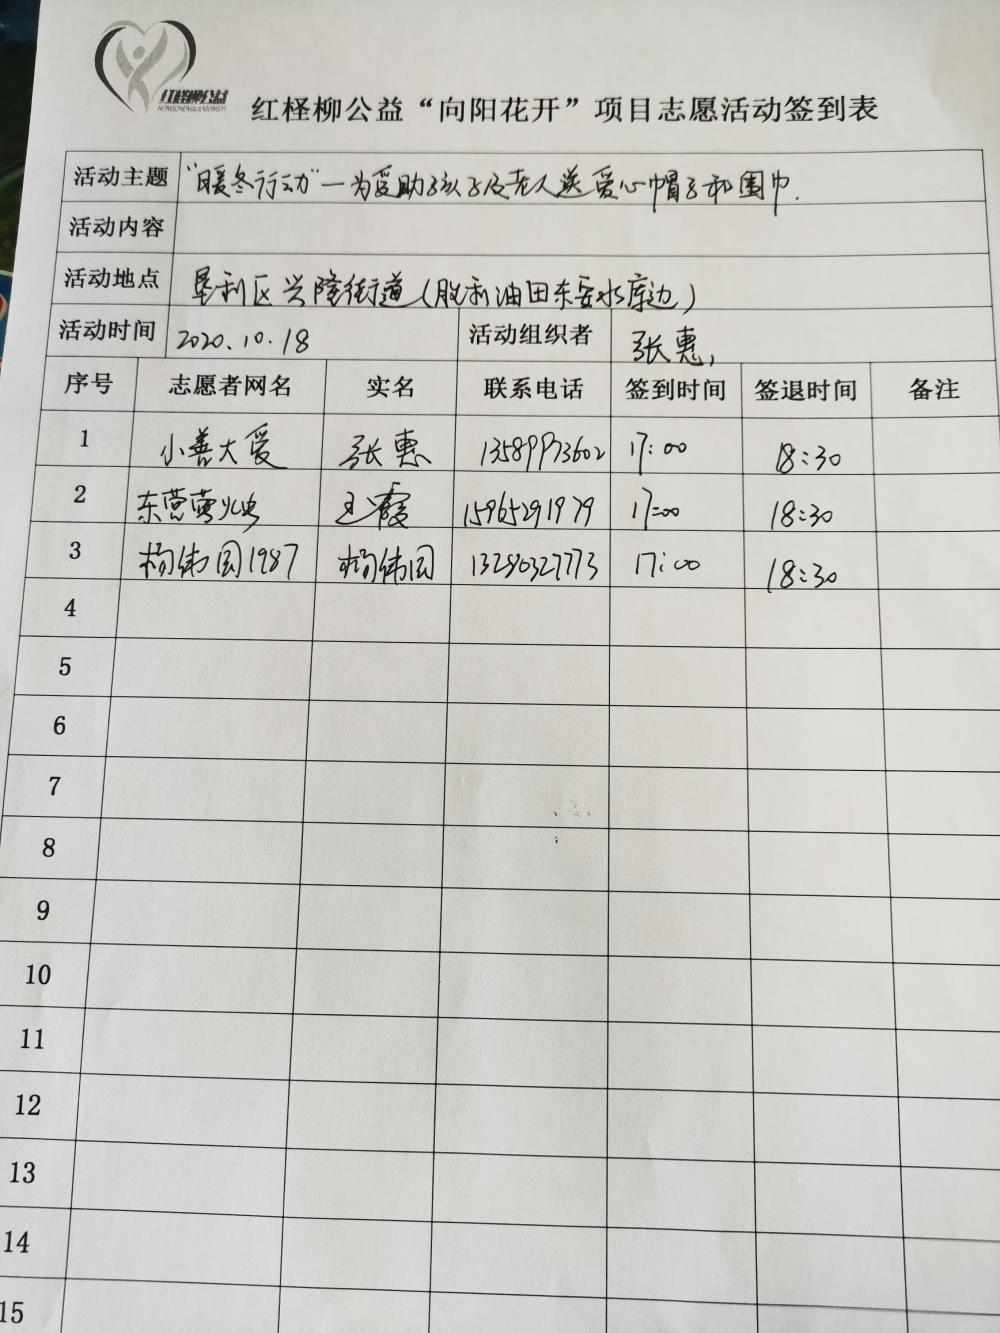 红柽柳公益
HONGCHENGLIUGONGYI
红柽柳公益“向阳花开”项目志愿活动签到表
活动主题 “暖冬行动”—为受助孩子及老人送爱心帽子和围巾.
活动内容
活动地点 垦利区兴隆街道(胜利油田东安水库边)
活动时间 2020.10.18 活动组织者 张惠,
序号 志愿者网名 实名 联系电话 签到时间 签退时间 备注
1 小善大爱 张惠 13589973602 17:00 18:30
2 东营萤火虫 王霞 15965291979 17:00 18:30
3 杨伟国1987 杨伟国 13280327773 17:00 18:30
4
5
6
7
8
9
10
11
12
13
14
15